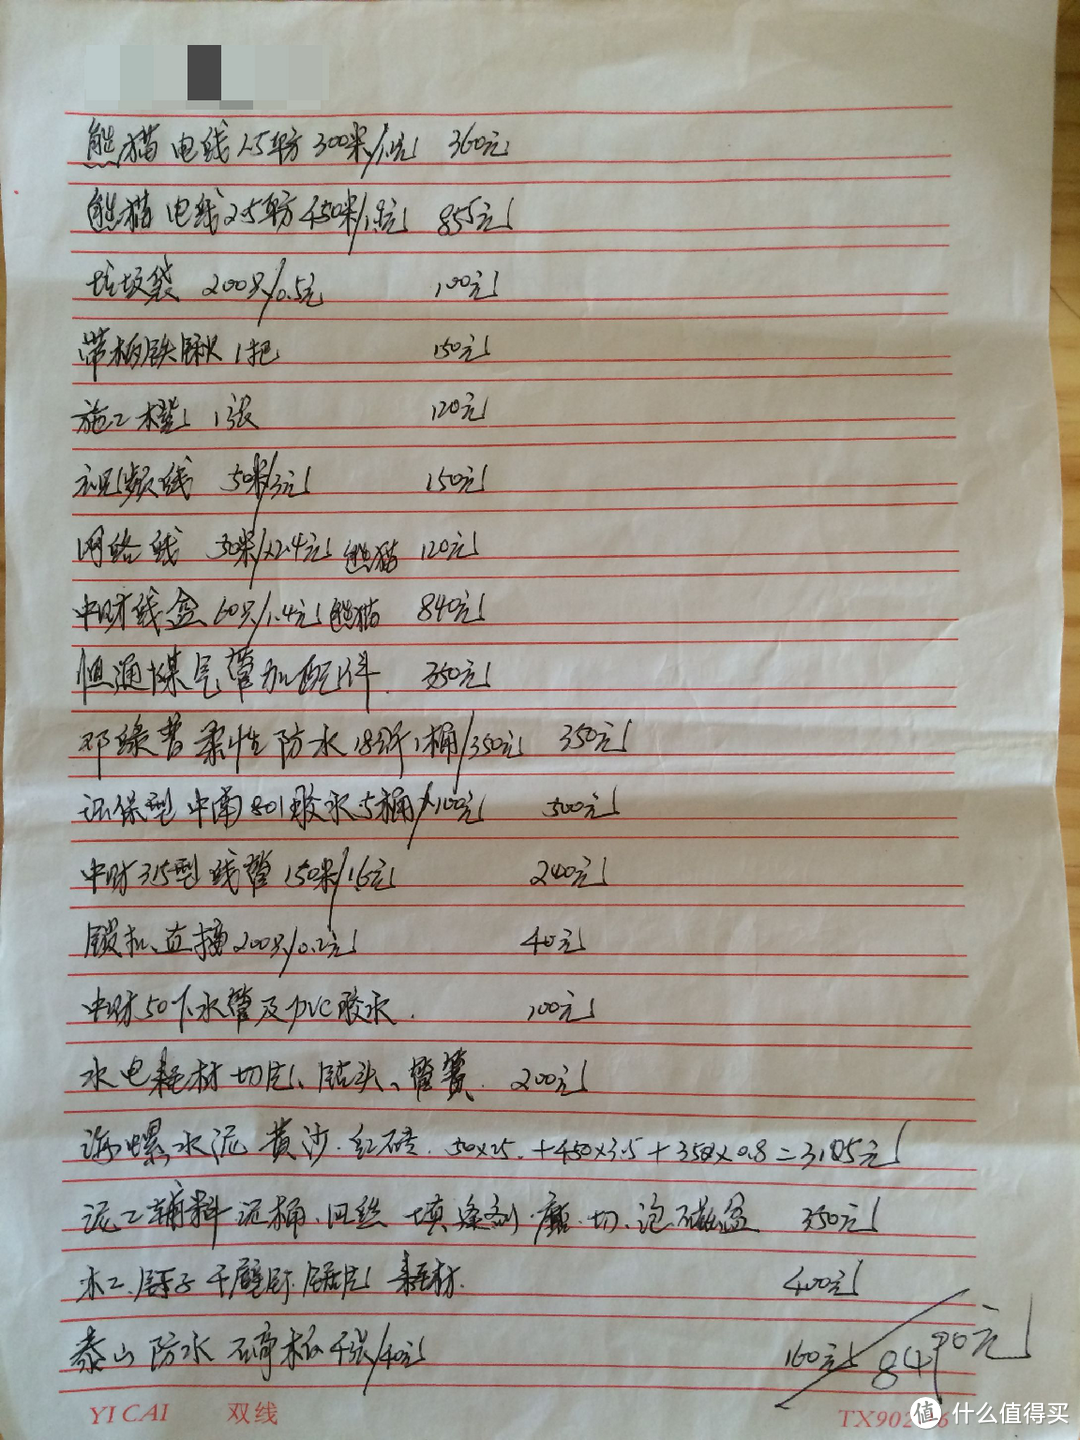 熊猫电线1.5平方300米/1.2元 360元
熊猫电线2.5平方450米/1.9元 855元
垃圾袋 200只/0.5元 100元
带柄铁锹1把 150元
施工木凳 1张 120元
视频线 50米/3元 150元
网络线 50米/x2.4元 熊猫 120元
中财线盒60只/1.4元 熊猫 840元
恒通煤气管加配件. 350元
邓禄普柔性防水18公斤1桶/350元 350元
环保型中南801胶水5桶/x100元 500元
中财315型线管150米/1.6元 240元
锁扣、直接200只/0.2元 40元
中财50下水管及PVC胶水. 100元
水电耗材切片、钻头、管簧. 200元
海螺水泥 黄沙.红砖. 50x25.+450x3.5+350x0.8=3105元
泥工辅料泥桶、回丝 填缝剂.磨.切、泡磁盆 350元
木工.钉子干壁钉.锯片 耗材. 400元
泰山防水石膏板4张/40元 160元
8490元
YI CAI 双线 TX902
值 什么值得买